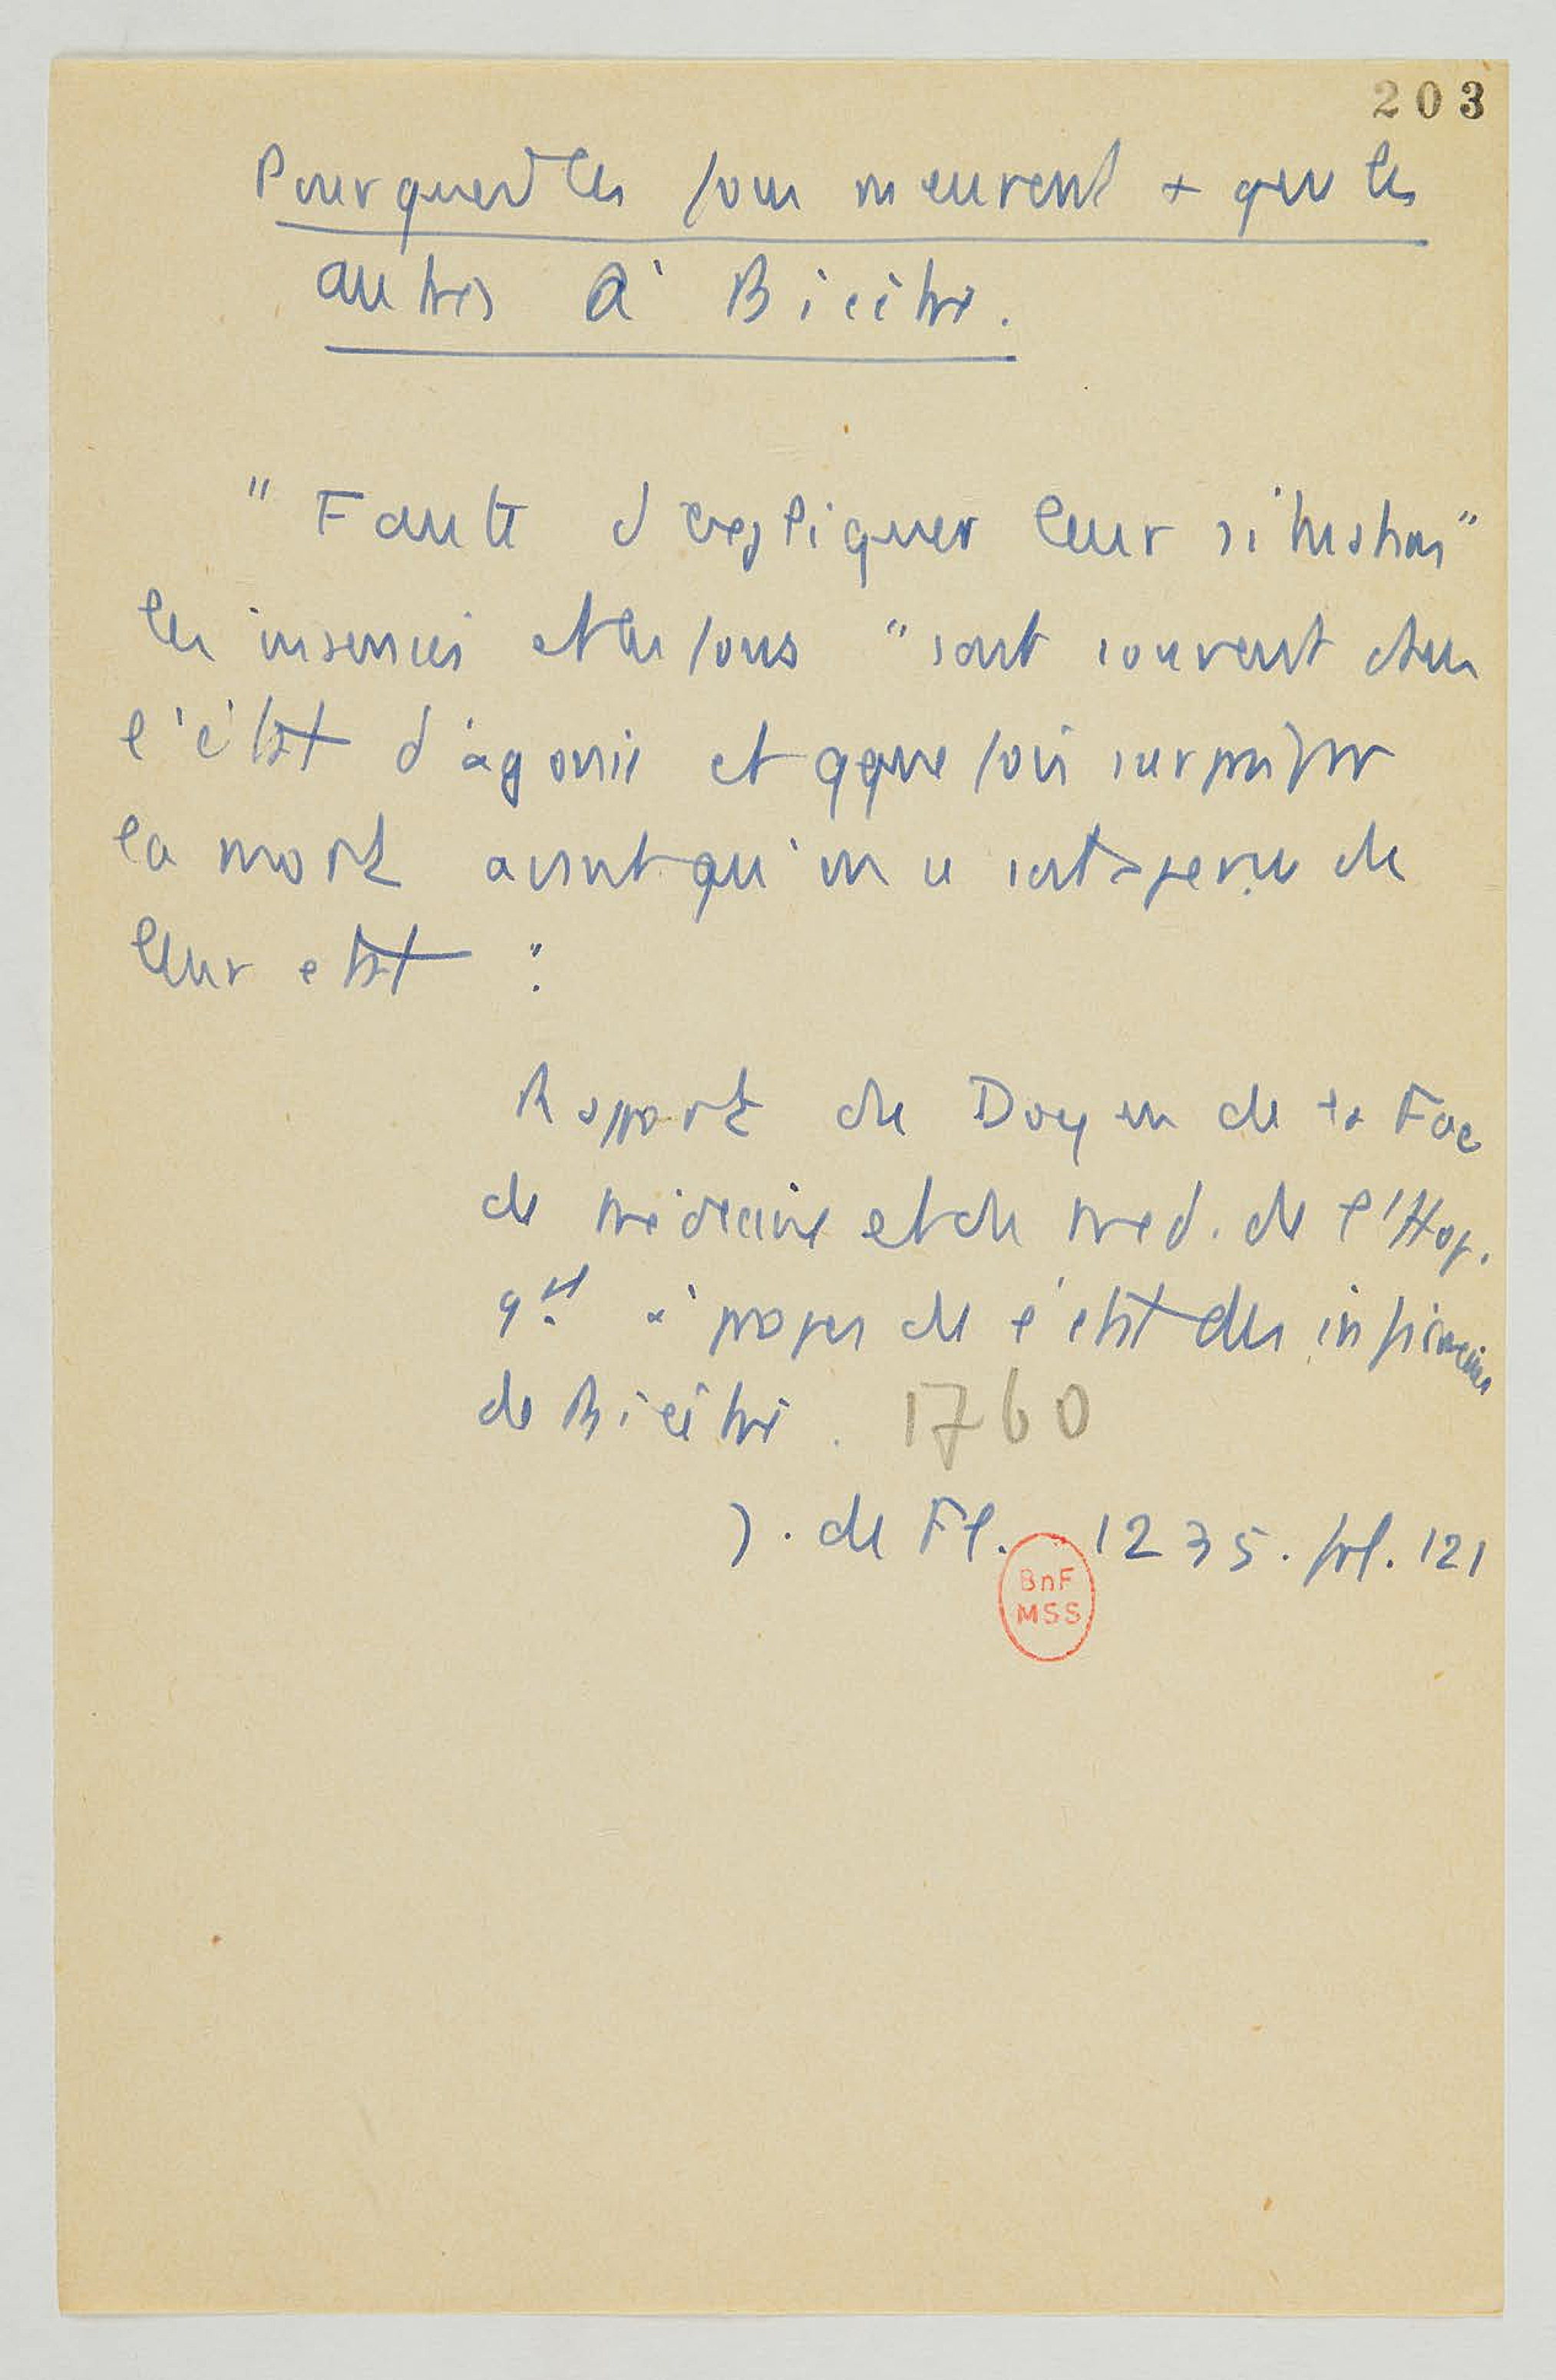 203
Pourquoi les fous meurent + que les
autres à Bicêtre.
"Faute d'expliquer leur situation"
les insensés et les fous "sont souvent dans
l'état d'agonie et qque fois surpris par
la mort avant qu'on se soit aperçu de
leur etat".
Rapport du Doyen de la Fac
de médecine et du med. de l'Hop.
gal à propos de l'etat des infirmeries
de Bicêtre. 1760
J. de Fl. 1235. fol. 121
BnF
MSS